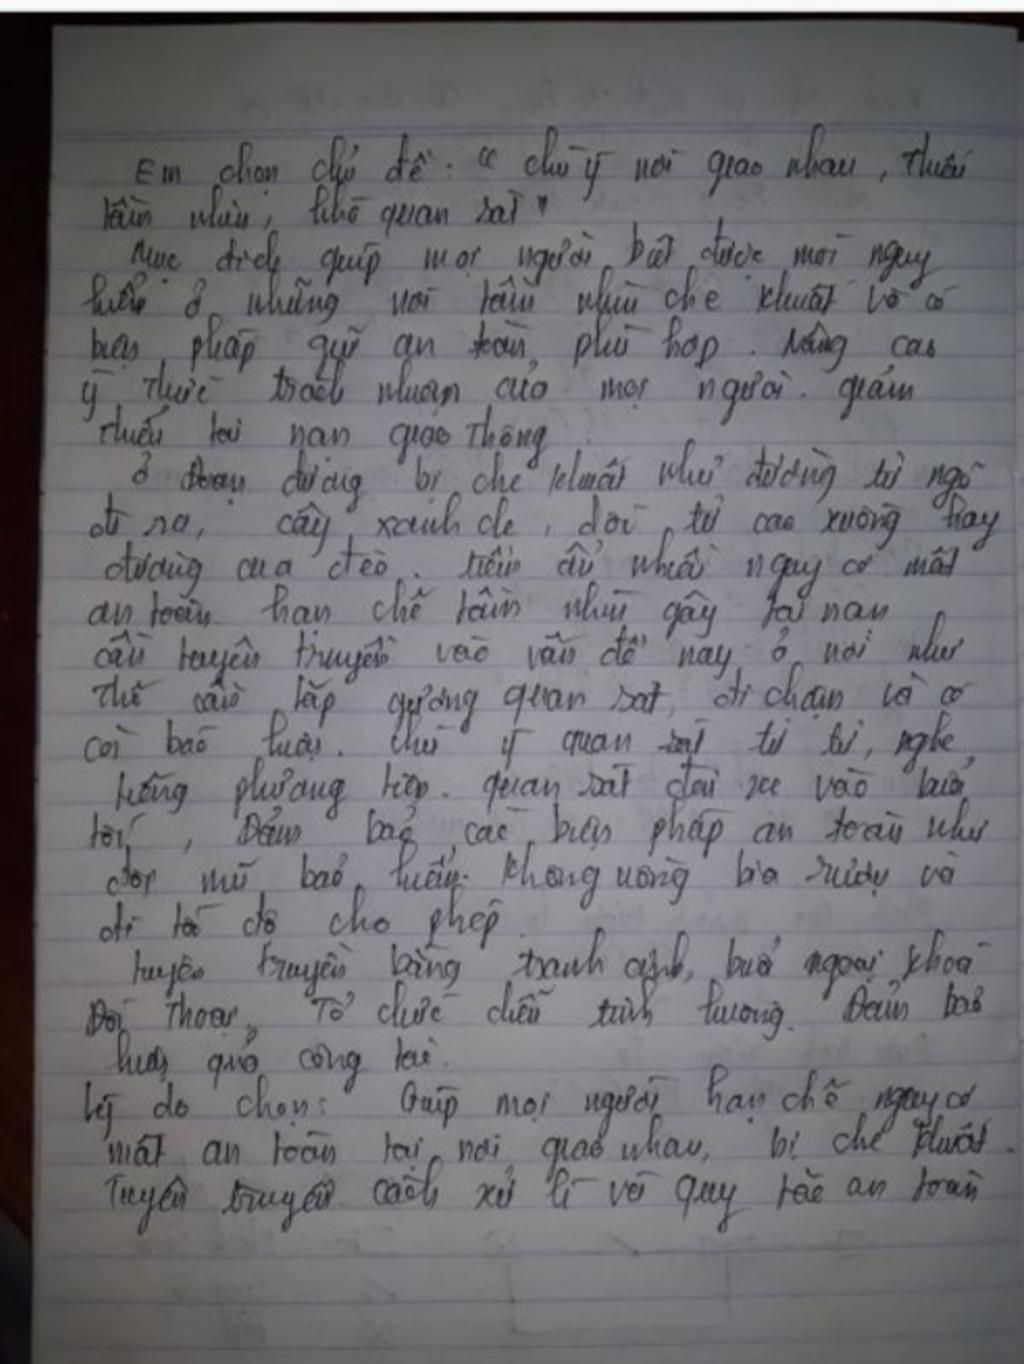 Em chọn chủ đề: "chú ý nơi giao nhau, thiếu
tầm nhìn, khó quan sát"
Mục đích giúp mọi người biết được mối nguy
hiểm ở những nơi tầm nhìn che khuất và có
biện pháp giữ an toàn phù hợp. Nâng cao
ý thức trách nhiệm của mọi người. giảm
thiểu tai nạn giao thông
ở đoạn đường bị che khuất như đường từ ngõ
đi ra, cây xanh che, dốc từ cao xuống hay
đường qua đèo. tiềm ẩn nhiều nguy cơ mất
an toàn hạn chế tầm nhìn gây tai nạn
cần tuyên truyền vào vấn đề này ở nơi như
thế cần lắp gương quan sát, đi chậm và có
còi báo hiệu. chú ý quan sát từ từ, nghe
phương tiện. quan sát đèn xe vào buổi
tối, Đảm bảo các biện pháp an toàn như
đội mũ bảo hiểm. không uống bia rượu và
đi tốc độ cho phép.
tuyên truyền bằng tranh ảnh, buổi ngoại khoá
Đối thoại, Tổ chức diễn tình huống. Đảm bảo
hiệu quả công tác.
Lý do chọn: Giúp mọi người hạn chế nguy cơ
mất an toàn tại nơi giao nhau, bị che khuất.
Tuyên truyền cách xử lí và quy tắc an toàn